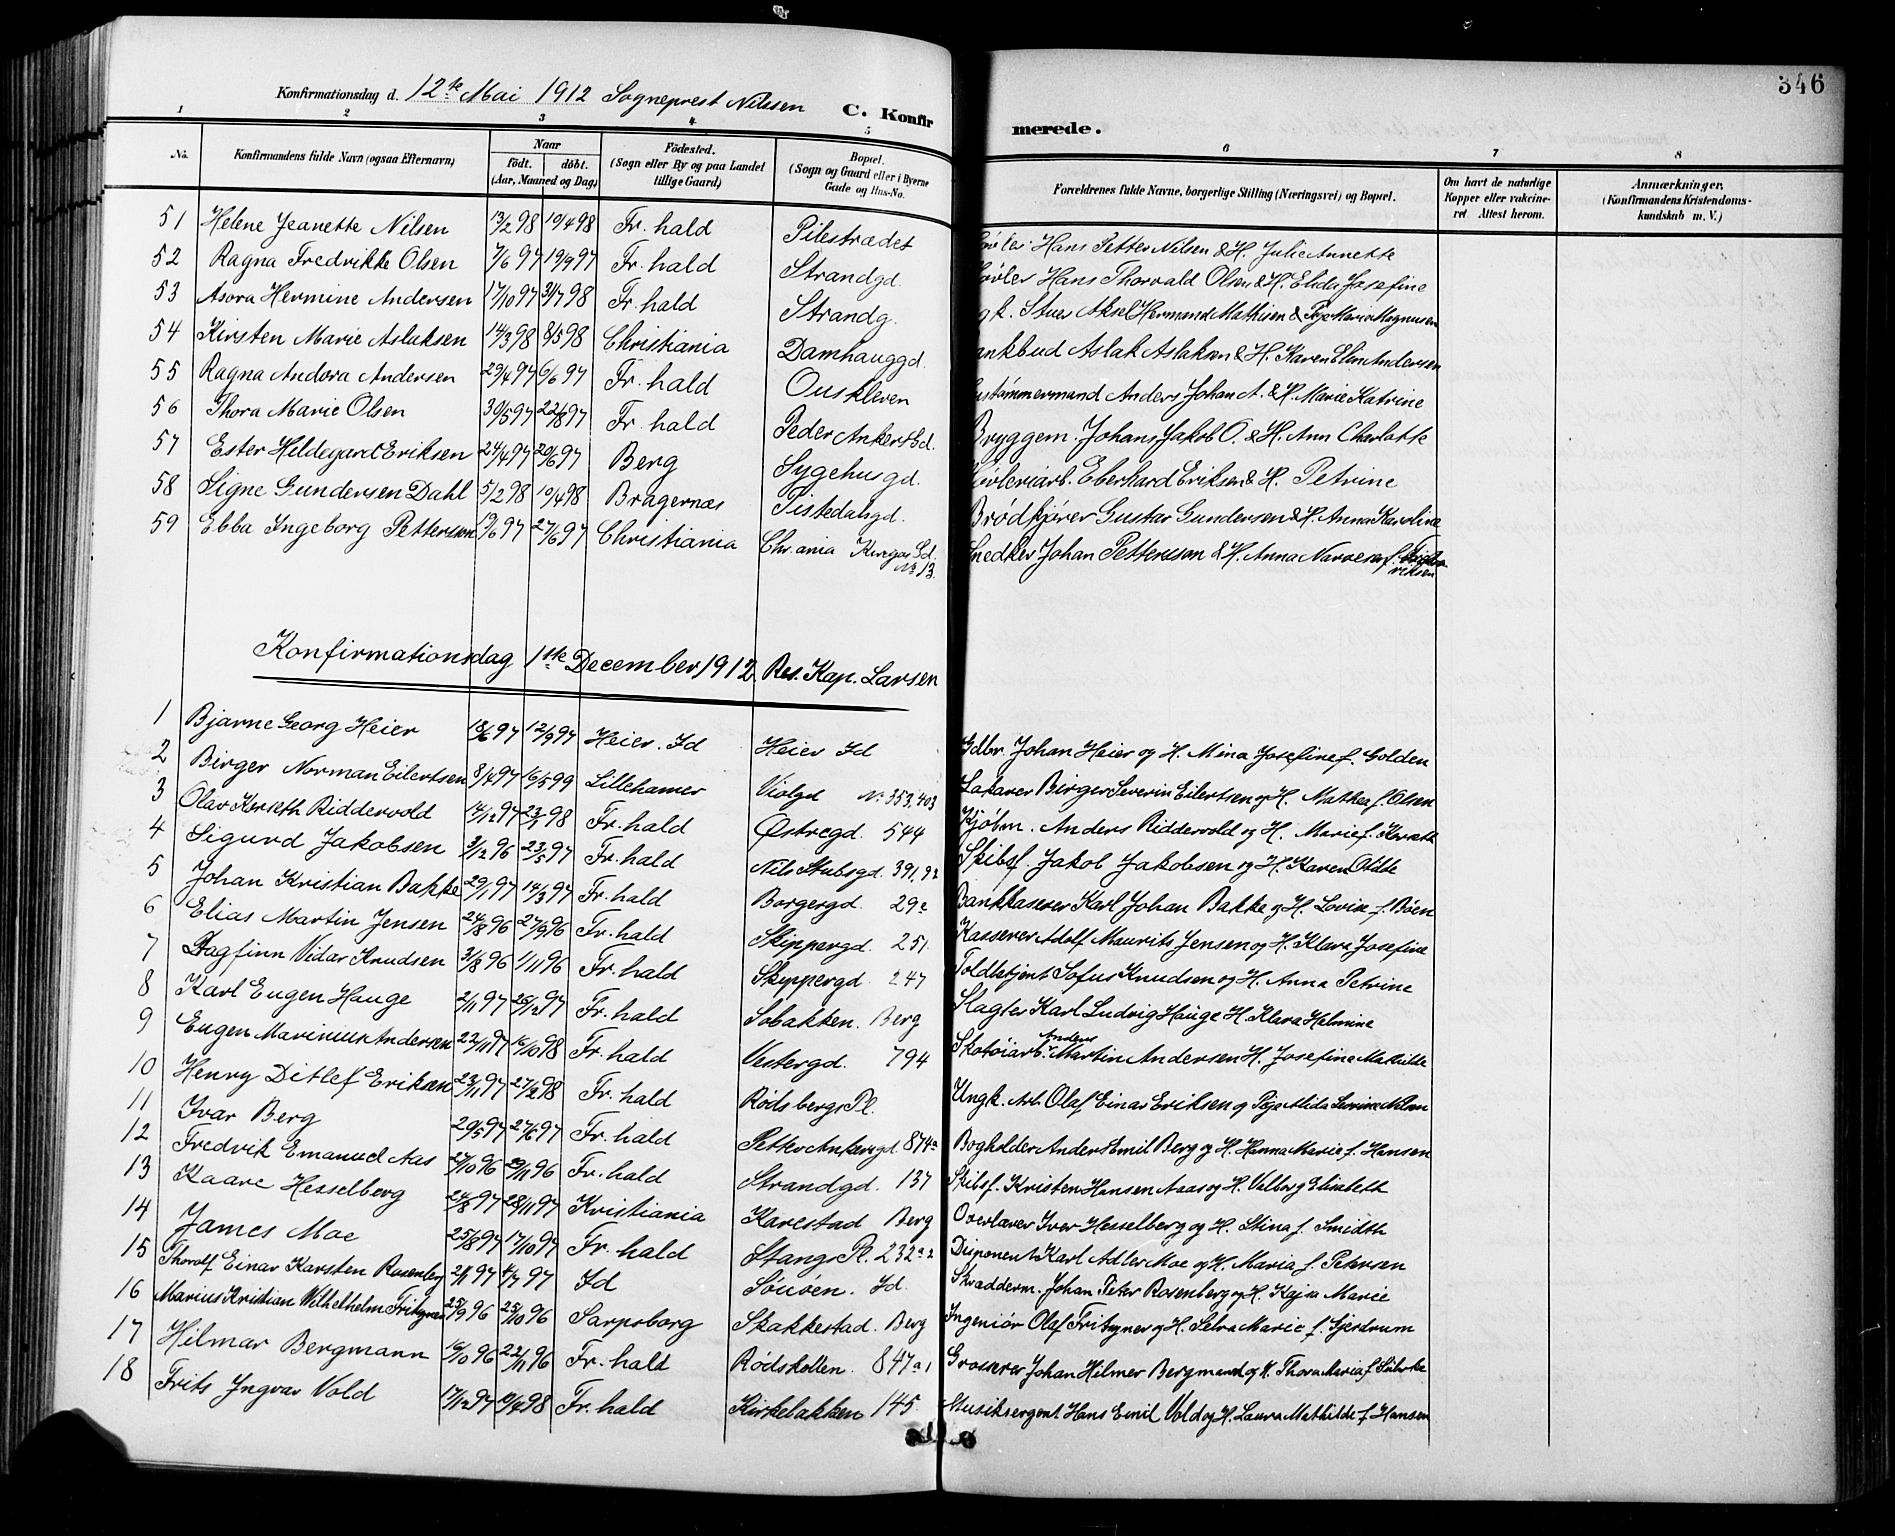 346
Konfirmationsdag d. 12te Mai 1912 Sogneprest Nilssen
C. Konfirmerede.
1 2 3 4 5 6 7 8
No. Konfirmandens fulde Navn (ogsaa Efternavn) Naar født. døbt. (Aar, Maaned og Dag) Födested. (Sogn eller By og paa Landet tillige Gaard) Bopæl. (Sogn og Gaard eller i Byerne Gade og Hus-No. Forældrenes fulde Navne, borgerlige Stilling (Næringsvei) og Bopæl. Om havt de naturlige Kopper eller vakcineret. Attest herom. Anmærkninger. (Konfirmandens Kristendomskundskab m. V.)
51 Helene Jeanette Nilsen 13/2 98 10/4 98 Fr. hald Pilestrædet Hans Petter Nilsen & H. Julie Annette
52 Ragna Fredrikke Olsen 7/6 97 19/9 97 Fr. hald Strandgd. Hans Thorvald Olsen & H. Elida Josefine
53 Asora Hermine Andersen 17/10 97 31/7 98 Fr. hald Strandg. Stuer Aksel Hermand Mathisen & Pige Marie Magnusen
54 Kirsten Marie Aslaksen 14/3 98 8/5 98 Christiania Damhauggd. ankbud Aslak Aslaksen & H. Karen Elin Andersen
55 Ragna Andora Andersen 29/4 97 6/6 97 Fr. hald Ouskleven ustømmermand Anders Johan A. & H. Marie Katrine
56 Thora Marie Olsen 30/5 97 22/8 97 Fr. hald Peder Ankersgd. Bryggem. Johans Jakob O. & H. Ann Charlotte
57 Ester Hildegard Eriksen 24/4 97 20/6 97 Berg Sygehusgd. Høvleriarb. Eberhard Eriksen & H. Petrine
58 Signe Gundersen Dahl 5/2 98 10/4 98 Bragernæs Tistedalsgd. Brødkjører Gustav Gundersen & H. Anna Karoline
59 Ebba Ingeborg Petterson 19/6 97 27/6 97 Christiania Chr.ania Gd. No 13. Snedker Johan Pettersson & H. Anna
Konfirmationsdag 1ste December 1912. Res. Kap. Larsen
1 Bjarne Georg Heier 18/6 97 12/9 97 Heier. Id Heier Id Gdbr. Johan Heier og H. Mina Josefine f. Golden
2 Birger Norman Eilertsen 8/4 97 16/5 99 Lillehamer Violgd No 353, 403 Lakerer Birger Severin Eilertsen og H. Mathea f. Olsen
3 Olav Korseth Riddervold 14/12 97 23/1 98 Fr. hald Østregd. 544 Kjøbm. Anders Riddervold og H. Marie f. Korseth
4 Sigurd Jakobsen 3/12 96 23/5 97 Fr. hald Nils Stubsgd. 391, 92 Skibsf. Jakob Jakobsen og H. Karen Otilde
5 Johan Kristian Bakke 29/1 97 14/3 97 Fr. hald Borgergd. 29c Bankkaserer Karl Johan Bakke og H. Lovise f. Böen
6 Elias Martin Jensen 24/8 96 27/9 96 Fr. hald Skippergd. 251. Kasserer Adolf Maurits Jensen og H. Klara Josefine
7 Dagfinn Vidar Knudsen 31/8 96 1/11 96 Fr. hald Skippergd. 247 Toldbetjent Sofus Knudsen og H. Anna Petrine
8 Karl Eugen Hauge 2/11 97 26/12 97 Fr. hald Sobakken. Berg Slagter Karl Ludvig Hauge H. Klara Helmine
9 Eugen Marinius Andersen 22/11 97 16/10 98 Fr. hald Vestergd. 794 Skotöiarb. Anders Martin Andersen H. Josefine Mathilde
10 Henry Ditlef Eriksen 23/11 97 27/2 98 Fr. hald Rødsbergs Pl. Ungk. Arb. Olaf Einar Eriksen og Pige Alida Lovine Nilsen
11 Ivar Berg 29/5 97 27/6 97 Fr. hald Petter Ankersgd. 874a Bogholder Anders Emil Berg og H. Hanna Marie f. Hansen
12 Fredrik Emanuel Aas 27/10 96 29/11 96 Fr. hald Strandgd. 137 Skibsf. Kristen Hansen Aas og H. Valborg Elisabeth
13 Kaare Hesselberg 24/8 97 28/11 97 Kristiania Karestad Berg Overlærer Iver Hesselberg og H. Stina f. Smidth
14 James Moe 25/8 97 17/10 97 Fr. hald Stangs Pl. 232a2 Disponent Karl Adler Moe og H. Maria f. Petersen
15 Thorolf Einar Karsten Rosenberg 21/1 97 4/7 97 Id Souöen. Id. Skradderm. Johan Peter Rosenberg og H. Kajsa Marie
16 Marius Kristian Wilhelhelm Fritzner 25/9 96 25/10 96 Sarpsborg Skakkestad. Berg Ingeniör Olaf Fritzner og H. Selva Marie f. Gjerdrum
17 Hilmar Bergmann 16/10 96 22/11 96 Fr. hald Rödskollen. 847a1 Grosserer Johan Hilmer Bergmand og H. Thora Maria f.
18 Frits Ingvar Vold 17/12 97 11/4 98 Fr. hald Kirkebakken 145. Musiksergent Hans Emil Vold og H. Laura Mathilde f. Hansen